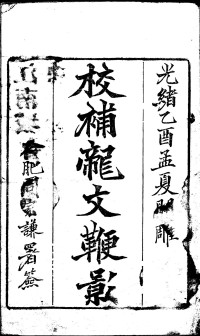 光緒乙酉孟夏開雕
校補龍文鞭影
合肥周家謙署簽